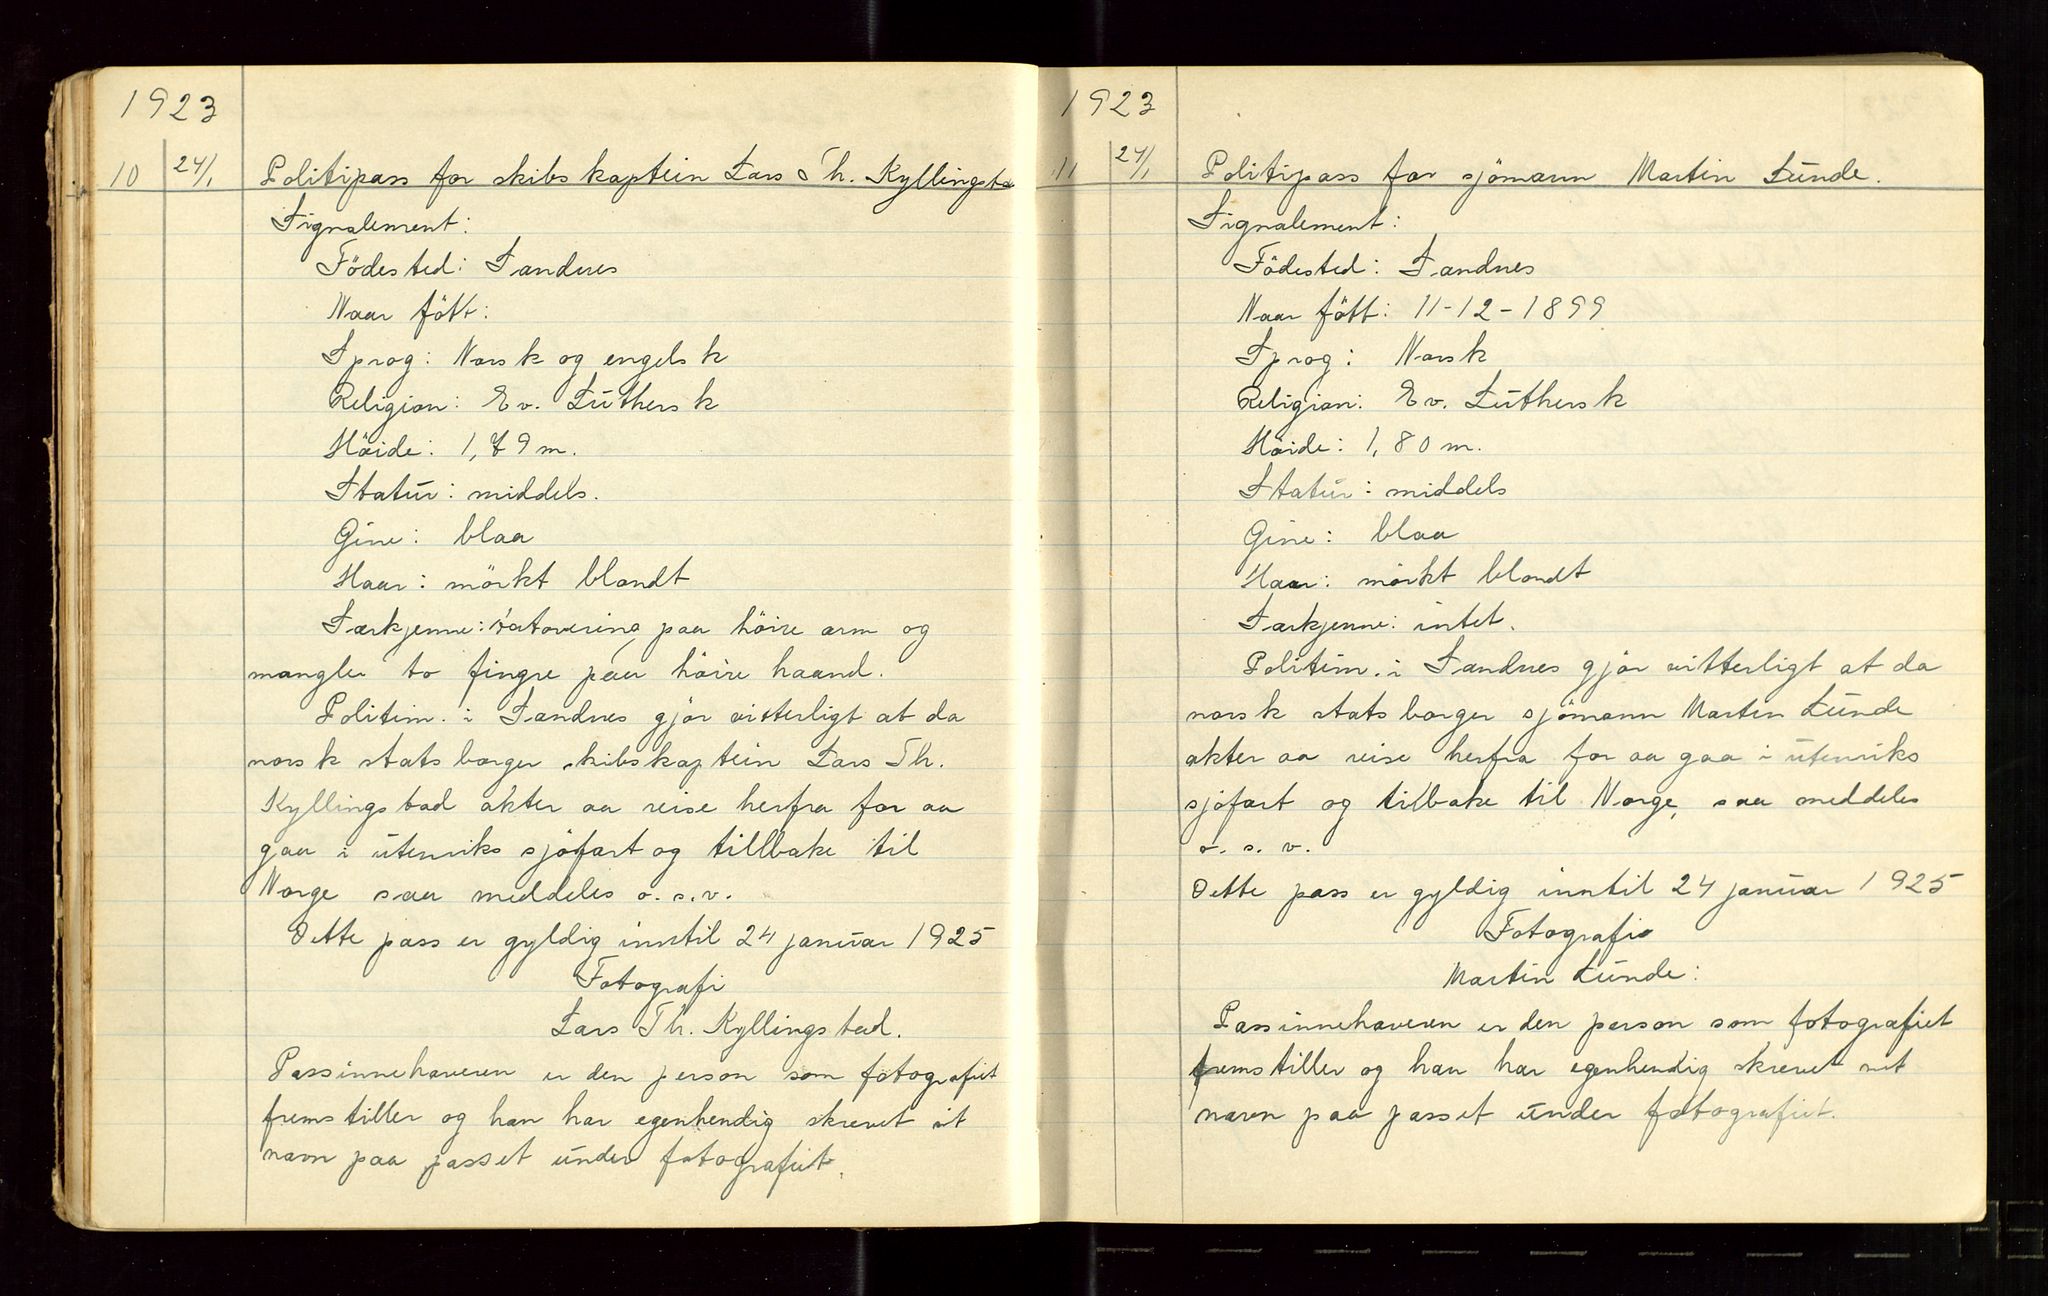 1923
10 24/1 Politipass for skibskaptein Lars Th. Kyllingsta
Signalement:
Födested: Sandnes
Naar fött:
Sprog: Norsk og engelsk
Religion: Ev. Luthersk
Höide: 1,79 m.
Statur: middels.
Öine: blaa
Haar: mörkt blondt
Særkjenne: tatovering paa höire arm og
mangler to fingre paa höire haand.
Politim. i Sandnes gjör vitterligt at da
norsk statsborger skibskaptein Lars Th.
Kyllingstad akter aa reise herfra for aa
gaa i utenriks sjöfart og tillbake til
Norge saa meddeles o.s.v.
Dette pass er gyldig inntil 24 januar 1925
Fotografi
Lars Th. Kyllingstad.
Passinnehaveren er den person som fotografiet
fremstiller og han har egenhendig skrevet sit
navn paa passet under fotografiet.
1923
11 24/1 Politipass for sjömann Martin Lunde.
Signalement:
Födested: Sandnes
Naar fött: 11-12-1899
Sprog: Norsk
Religion: Ev. Luthersk
Höide: 1,80 m.
Statur: middels
Öine: blaa
Haar: mörkt blondt
Særkjenne: intet.
Politim. i Sandnes gjör vitterligt at da
norsk statsborger sjömann Martin Lunde
akter aa reise herfra for aa gaa i utenriks
sjöfart og tilbake til Norge, saa meddeles
o. s. v.
Dette pass er gyldig inntil 24 januar 1925
Fotografi
Martin Lunde:
Passinnehaveren er den person som fotografiet
fremstiller og han har egenhendig skrevet sit
navn paa passet under fotografiet.